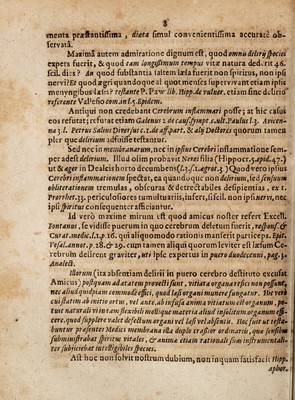 8
menta præstantissima, diæta simul convenientissima accuratè ob-
servatâ.
Maximâ autem admiratione dignum est, quod omni delirij speciei
expers fuerit, & quod tam longissimum tempus vitæ natura ded. rit 46.
scil. di: s? An quod substantia saltem læsa fuerit non spiritus, non ipsi
nervi? Et quod ægri quandoque al quot menses supervivant etiam ipsis
menyngibus læsis? testante P. Paw lib. Hipp. de vulner. etiam sine delirio
referente Valesio com. in l. 5. Epidem.
Antiqui non credebant Cerebrum inflammari posse; at hic casus
eos refutat; refutat etiam Galenus 2 de caus. sympt. c. ult. Paulus l. 3. Avicen-
na 3 l. Petrus Salius Diversus c. 1. de aff. part. & alij Doctores quorum tamen
pler que delirium adfuisse testantur.
Sed nec in membranarum, nec in ipsius Cerebri inflammatione sem-
per adest delirium. Illud olim probavit Nerei filia (Hippocr. 5. apid. 47.)
ut & æger in Dealcis horto decumbens (l. 3. s. 1. ægrot. 3.) Quod vero ipsius
Cerebri inflammationem spectat, ea quandoque non delirium, sed sensuum
obliterationem tremulas, obscuras & detrectabiles desipientias, ex 1.
Prorrhet. 33. periculosiores tum multis iis, iusert, si scil. non ipsi nervi, nec
ipsi spiritus consequenter afficiantur.
Id verò maxime mirum est quod amicus noster refert Excell.
Fontanus, se vidisse puerum in quo cerebrum deletum fuerit, respons. &
Curat. medic. l. 1. p. 16. qui aliquomodo rationis manserit particeps. Epit.
Vesal. annot. p. 28. & 29. cum tamen aliqui quorum leviter est læsum Ce-
rebrum delirent graviter, uti ipse expertus in puero duodecenni, pag. 3.
Analect.
Illorum (ita absentiam delirii in puero cerebro destituto excusat
Amicus) postquam ad ætatem provecti sunt, vitiata organa refici non possunt,
nec aliud quidpiam commodè effici, quod læsi organi munere fungatur. Hic verò
cui statim ab initio ortus, vel ante, ab infusa anima vitiatum est organum, po-
tuit naturali vi in tam flexibili mollique materia aliud insolitum organum effi-
cere, quod supplere valet defectum organi vel læsi vel absentis. Hoc fuit ut testi-
buntur præsentes Medici membrana illa duplo crassior ordinariâ, quæ sensibus
subministrabat spiritus vitales, & anima etiam rationali suas instrumentali-
ter subjiciebat intelligibiles species.
Ast hoc non solvit nostrum dubium, non inquam satisfacit Hipp.
aphor.